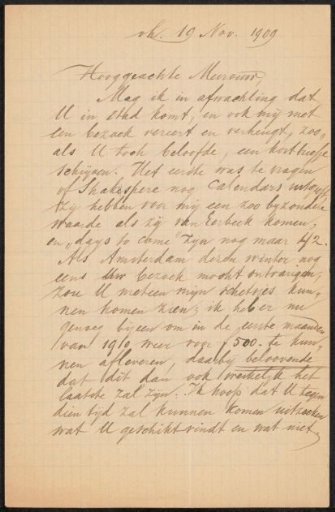 vh. 19 Nov. 1909
Hooggeachte Mevrouw,
Mag ik in afwachting dat
U in stad komt, en ook mij met
een bezoek vereert en verheugt, zoo
als U toch beloofde, een kort briefje
schrijven. Het eerste was te vragen
of Shakespere nog Calendars
zij hebben voor mij een zoo byzondere
waarde als zij van Eerbeek komen,
en „days to come" zyn nog maar 42.
Als Amsterdam dezen winter nog
eens Uw bezoek mocht ontvangen,
zou U meteen mijn schetsjes kun-
nen komen zien; ik heb er nu
genoeg bijeen om in de eerste maanden
van 1910 weer voor ƒ500.- te kun-
nen afleveren, daarby belovende
dat dit dan ook werkelijk het
laatste zal zyn. Ik hoop dat U tegen
dien tyd zal kunnen komen uitzoeken
wat U geschikt vindt en wat niet